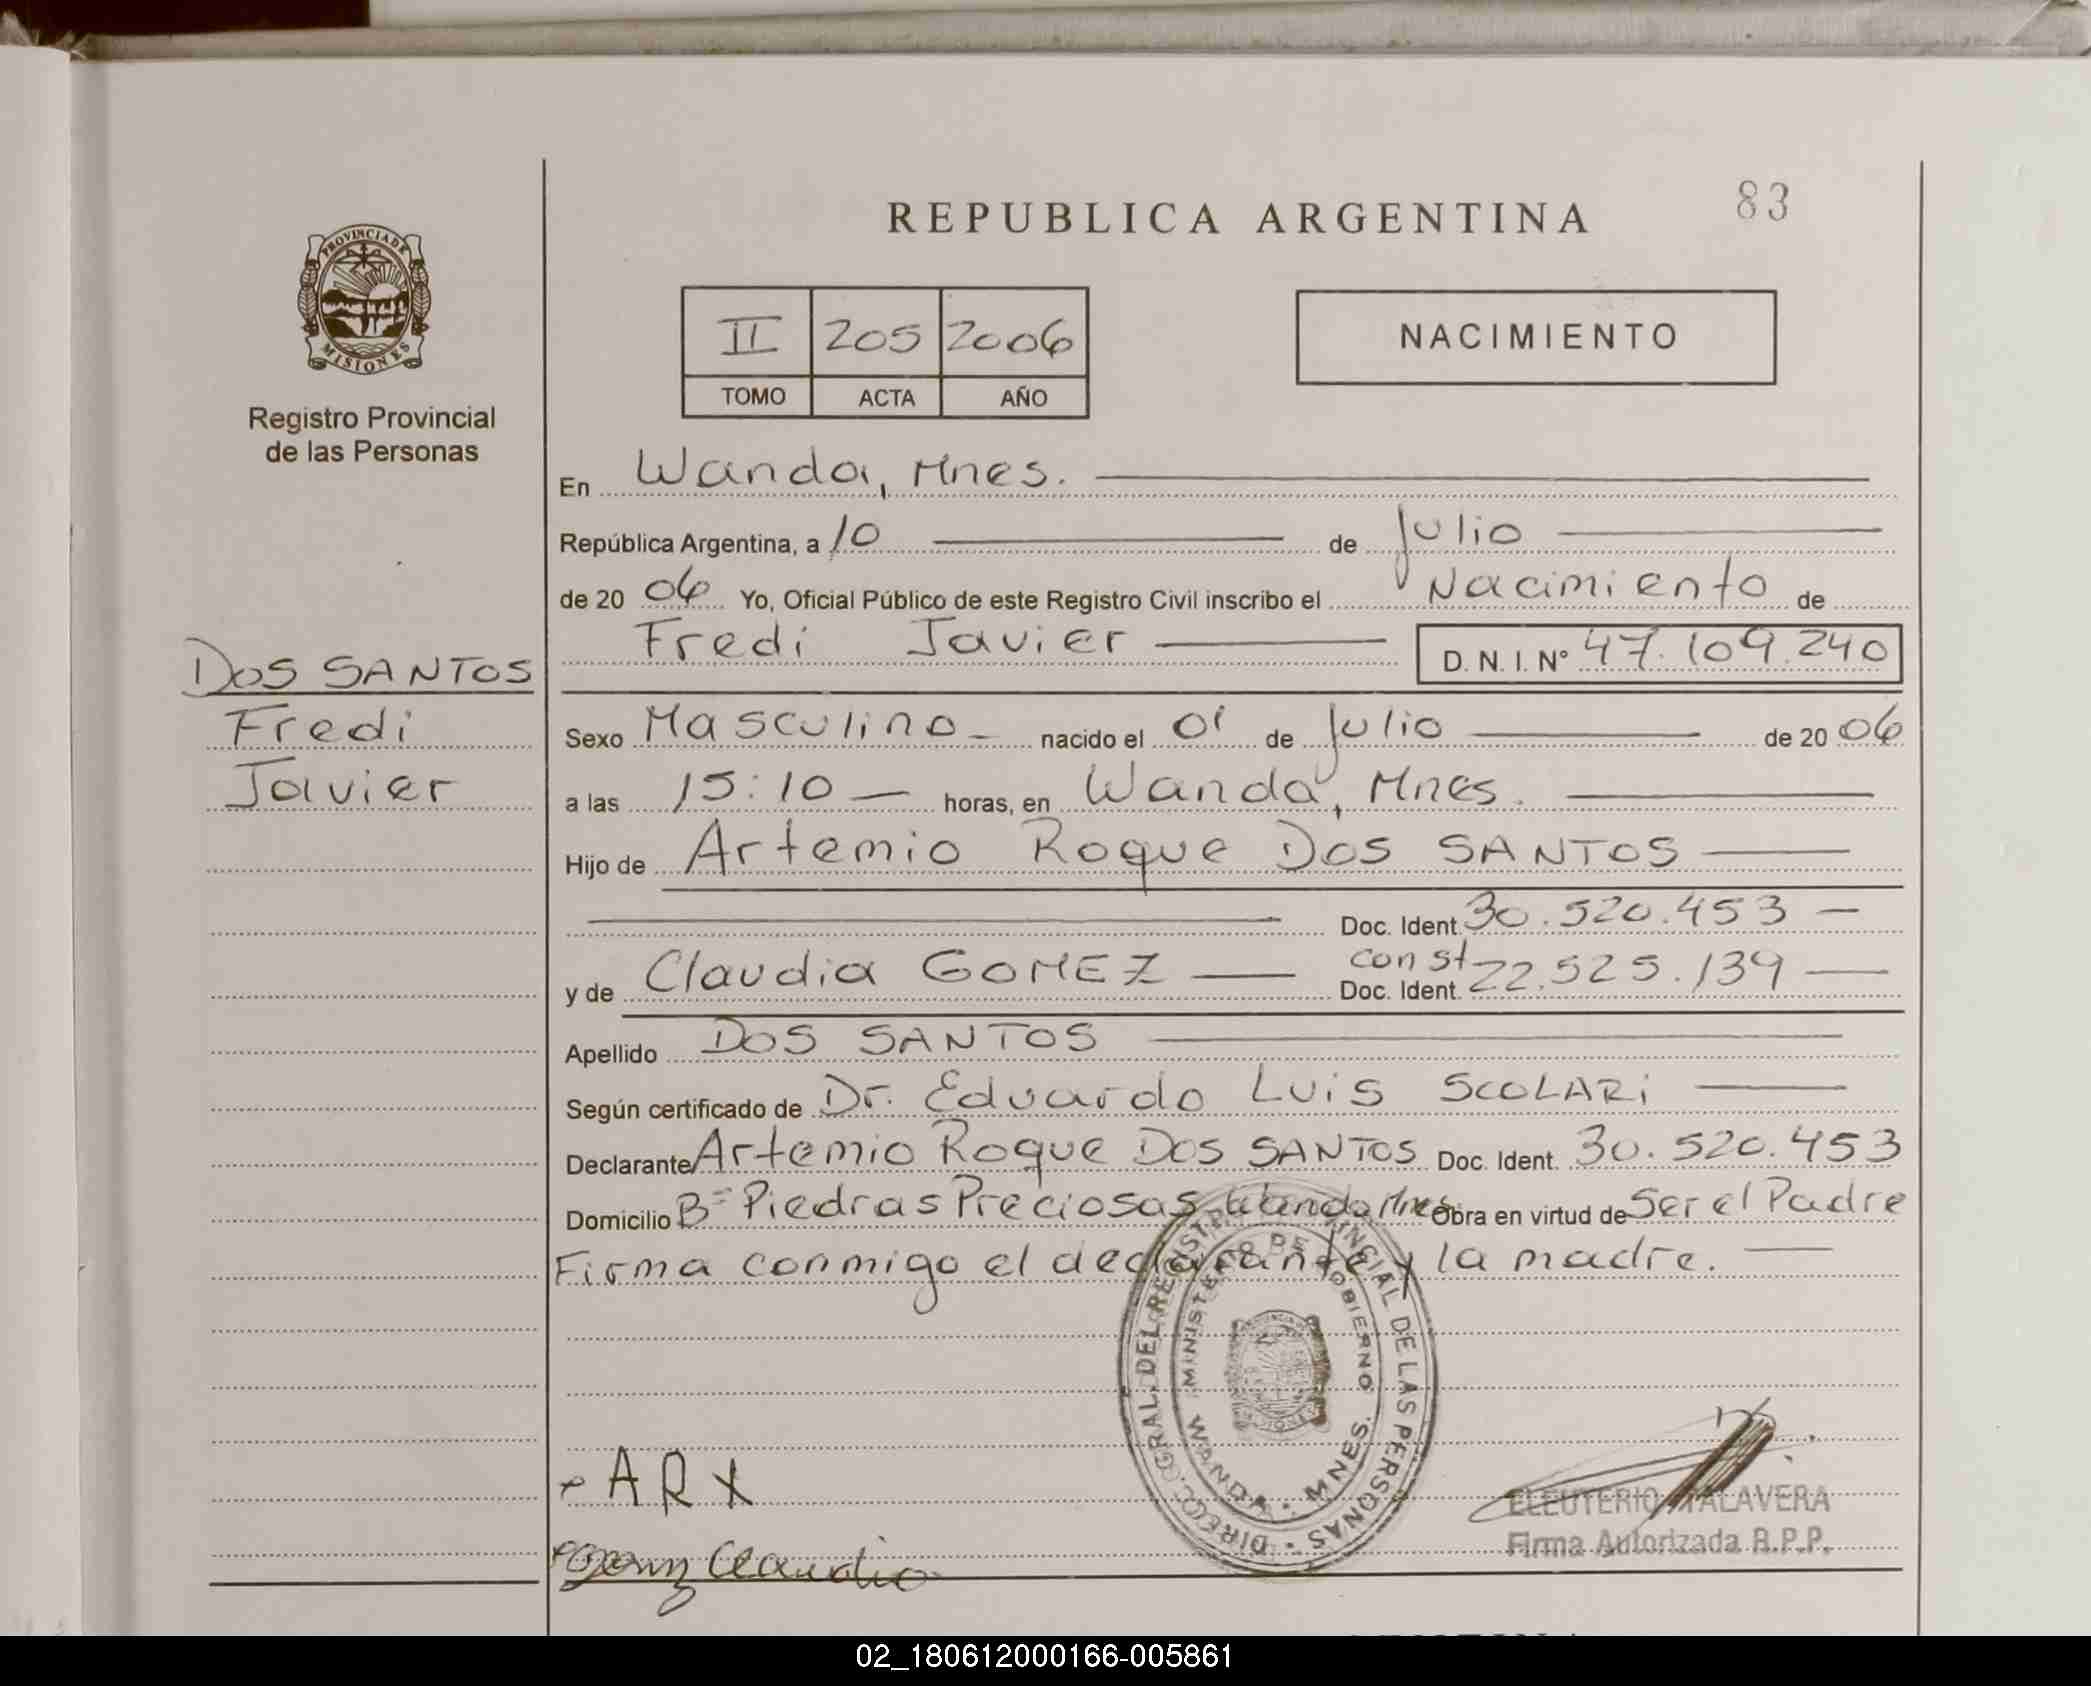 83
REPUBLICA ARGENTINA
PROVINCIA DE MISIONES
Registro Provincial
de las Personas
II 205 2006
TOMO ACTA AÑO
NACIMIENTO
En Wanda, Mnes.
República Argentina, a 10 de Julio
de 20 06 Yo, Oficial Público de este Registro Civil inscribo el Nacimiento de
Fredi Javier D. N. I. Nº 47.109.240
DOS SANTOS
Fredi
Javier
Sexo Masculino nacido el 01 de Julio de 20 06
a las 15:10 horas, en Wanda, Mnes.
Hijo de Artemio Roque DOS SANTOS
Doc. Ident. 30.520.453
y de Claudia GOMEZ const Doc. Ident. 22.525.139
Apellido DOS SANTOS
Según certificado de Dr. Eduardo Luis SCOLARI
Declarante Artemio Roque DOS SANTOS Doc. Ident. 30.520.453
Domicilio Bº Piedras Preciosas Wanda Mnes Obra en virtud de Ser el Padre
Firma conmigo el declarante y la madre.
DIRECC. GRAL. DEL REGISTRO PROVINCIAL DE LAS PERSONAS
MINISTERIO DE GOBIERNO
WANDA - MNES.
ARX
Claudia
ELEUTERIO TALAVERA
Firma Autorizada R.P.P.
02_180612000166-005861